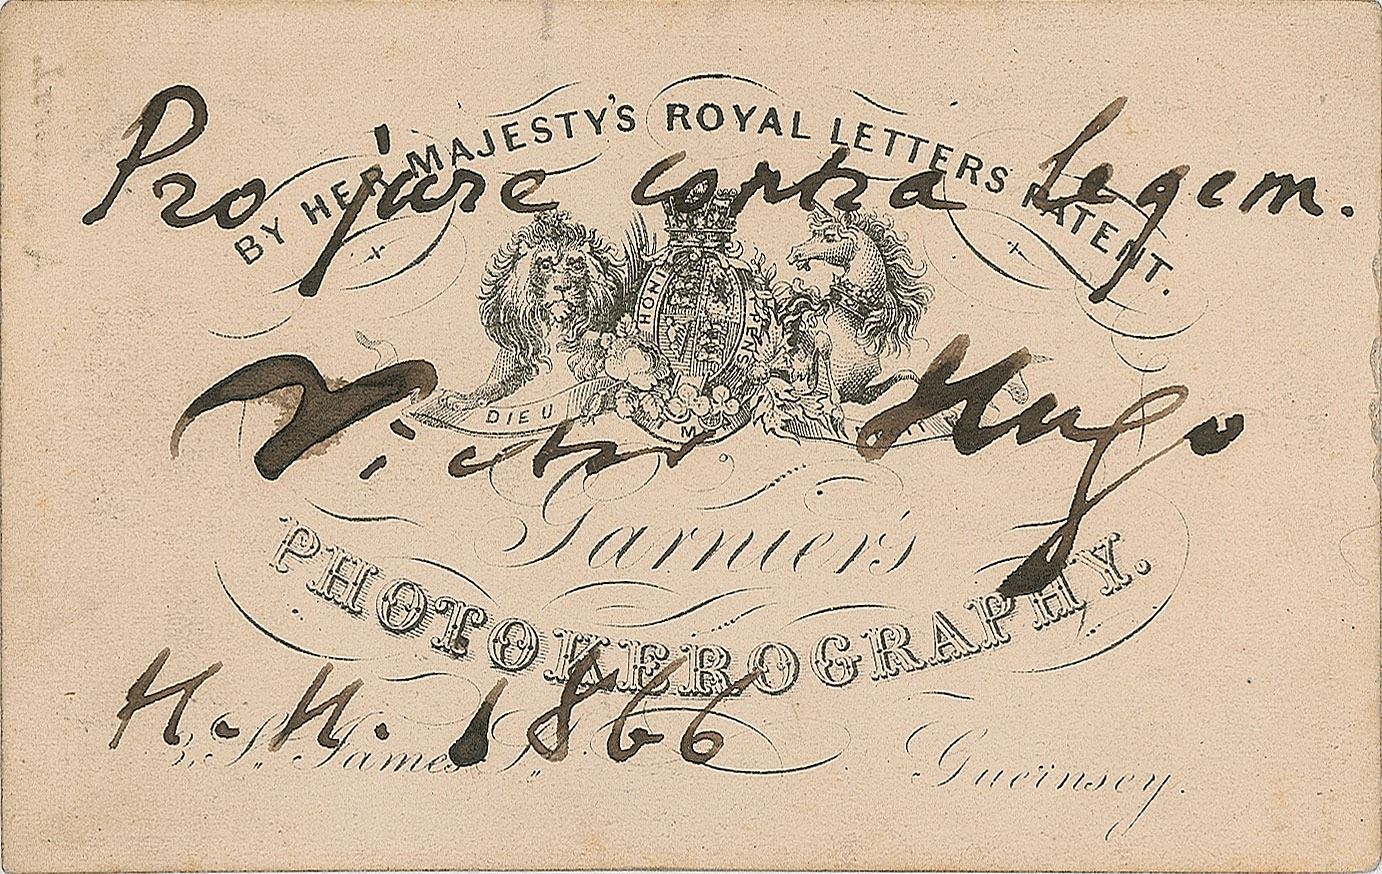 BY HER MAJESTY'S ROYAL LETTERS PATENT.
Pro jure contra legem.
HONI PENSE
DIEU M
Victor Hugo
Garnier's
PHOTOKEROGRAPHY.
H.-H. 1866
St. James St. Guernsey.